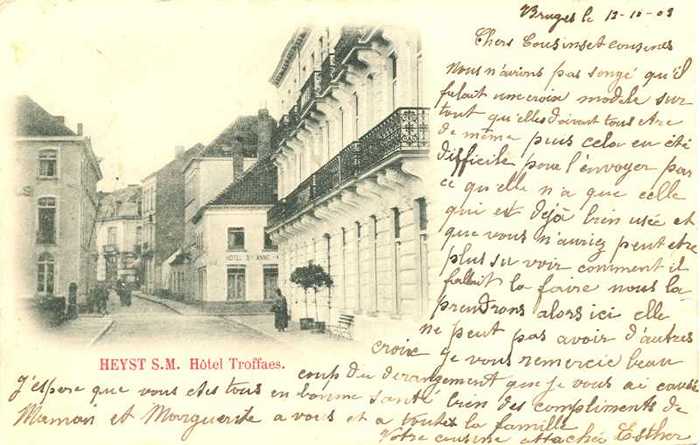 Bruges le 12-10-03
Chers Cousins et cousines
Nous n'avions pas songé qu'il
falait une croix modele sur
tout qu'elles doivent tous etre
de même puis cela eu été
difficile pour l'envoyer par
ce qu'elle n'a que celle
qui est déjà bien usée et
que vous n'auriez peut etre
plus su voir comment il
fallait la faire nous la
prendrons alors ici elle
ne peut pas avoir d'autres
croix je vous remercie beau
coup du derangement que je vous ai causé
J'espere que vous etes tous en bonne santé bien des compliments de
Maman et Marguerite a vous et a toute la famille
Votre cousine attachée Esther
HOTEL Ste ANNE
HEYST S.M. Hôtel Troffaes.